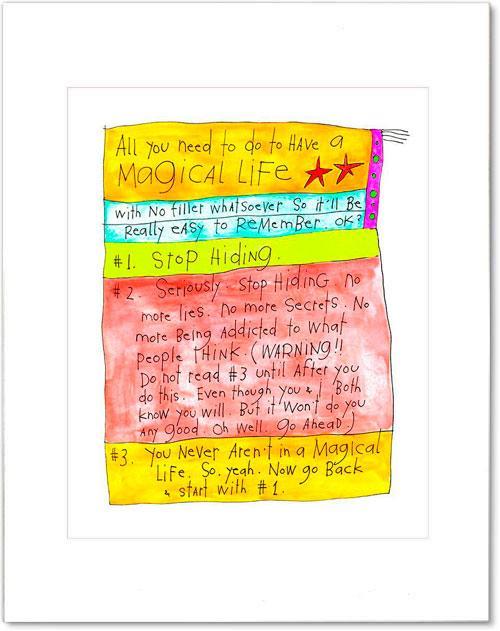 All you need to do to HAVE a
MagiCAL LiFe
with No filler whatsoever So it'll Be
Really eAsy to ReMeMBeR. OK?
#1. StoP HiDiNg.
#2. SeRiously. Stop HiDinG. no
more lies. no moRe SecRets. No
moRe Being ADDicteD to what
people THiNK. (WARNiNg!!
Do not read #3 until AfteR you
do this. Even though you & I Both
know you will. But it Won't do you
Any good. Oh well. Go AheaD.)
#3. You NeveR AReN't in a MagicAL
LiFe. So. yeah. Now go BacK
& stARt with #1.